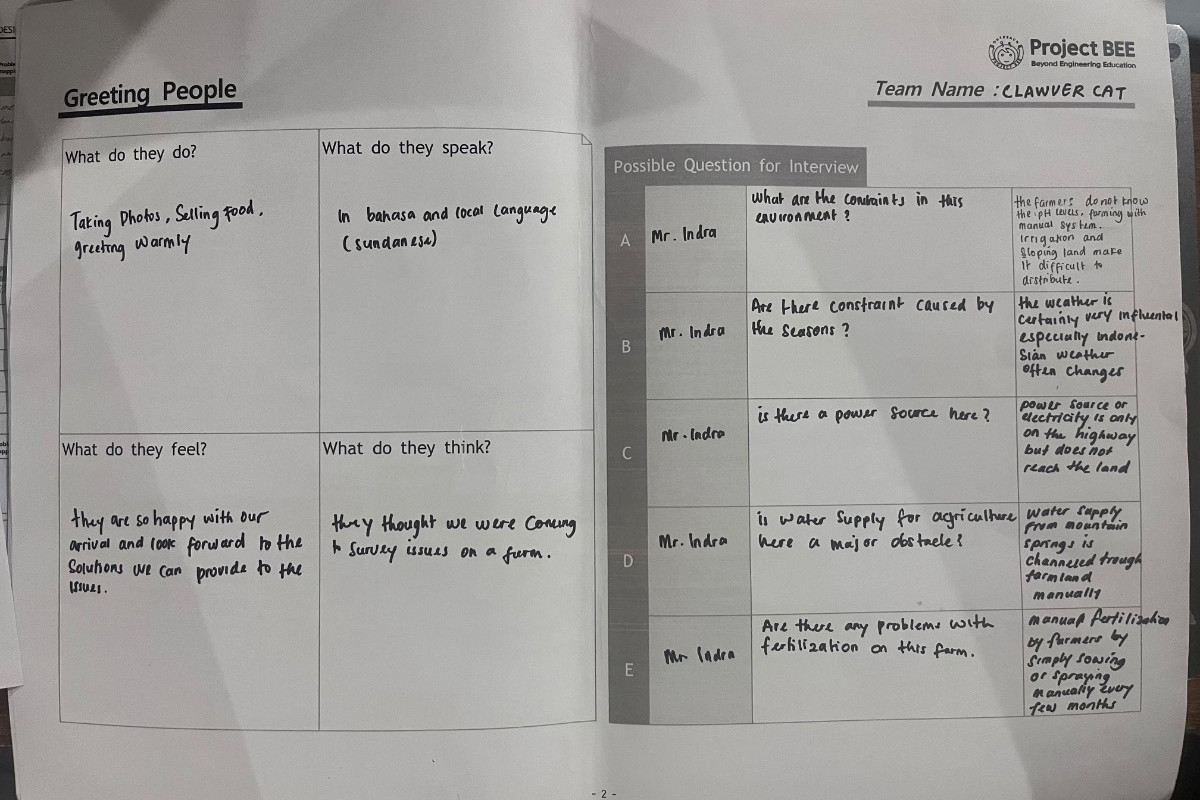 Greeting People
What do they do?
Taking Photos, Selling Food,
greeting warmly
What do they speak?
In bahasa and local language
(sundanese)
What do they feel?
they are so happy with our
arrival and look forward to the
Solutions we can provide to the
issues.
What do they think?
they thought we were Coming
to survey issues on a farm.
Project BEE
Beyond Engineering Education
Team Name : CLAWVER CAT
Possible Question for Interview
A
Mr. Indra
What are the constraints in this
environment ?
the farmers do not know
the pH levels, farming with
manual system.
Irrigation and
Sloping land make
It difficult to
distribute.
B
Mr. Indra
Are there constraint caused by
the seasons ?
the weather is
certainly very influental
especially indone-
sian weather
often changes
C
Mr. Indra
is there a power source here ?
power source or
electricity is only
on the highway
but does not
reach the land
D
Mr. Indra
is water supply for agriculture
here a major obstacle ?
water supply
from mountain
springs is
channeled trough
farmland
manually
E
Mr Indra
Are there any problems with
fertilization on this farm.
manual fertilization
by farmers by
simply sowing
or spraying
manually every
few months
- 2 -